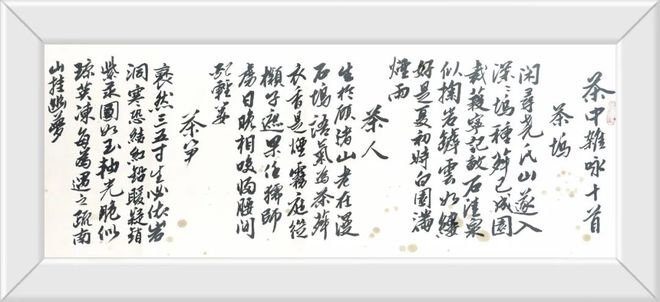 茶中雜咏十首
茶塢
闲尋尧氏山遂入
深〻塢種荈已成園
栽葭寧记畝石洼泉
似掬岩罅雲如縷
好是夏初時白花滿
煙雨
茶人
生於顧渚山老在漫
石塢語氣為茶荈
衣香是煙霧庭從
子遮果任獳師
虜日晚相笑歸腰間
佩輕蔞
茶笋
裛然三五寸生必依岩
洞寒恐結紅鉛暖疑銷
紫汞圓如玉軸光脆似
琼英凍每為遇之疏南
山挂幽夢